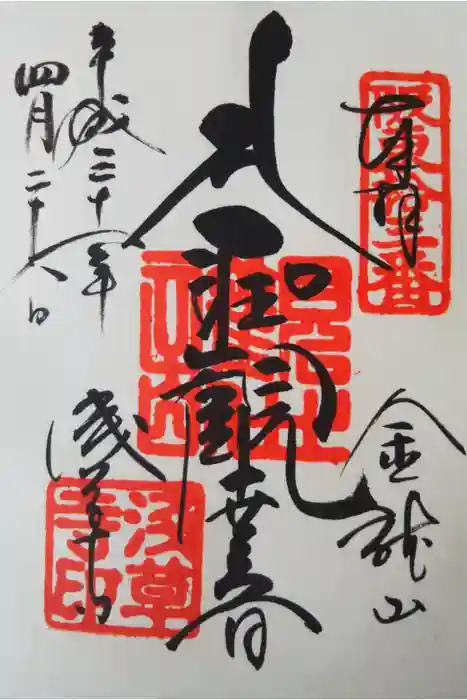 坂東拾三番
奉拝
金龍山
聖観世音
平成三十年
四月二十八日
浅草寺
浅草寺印